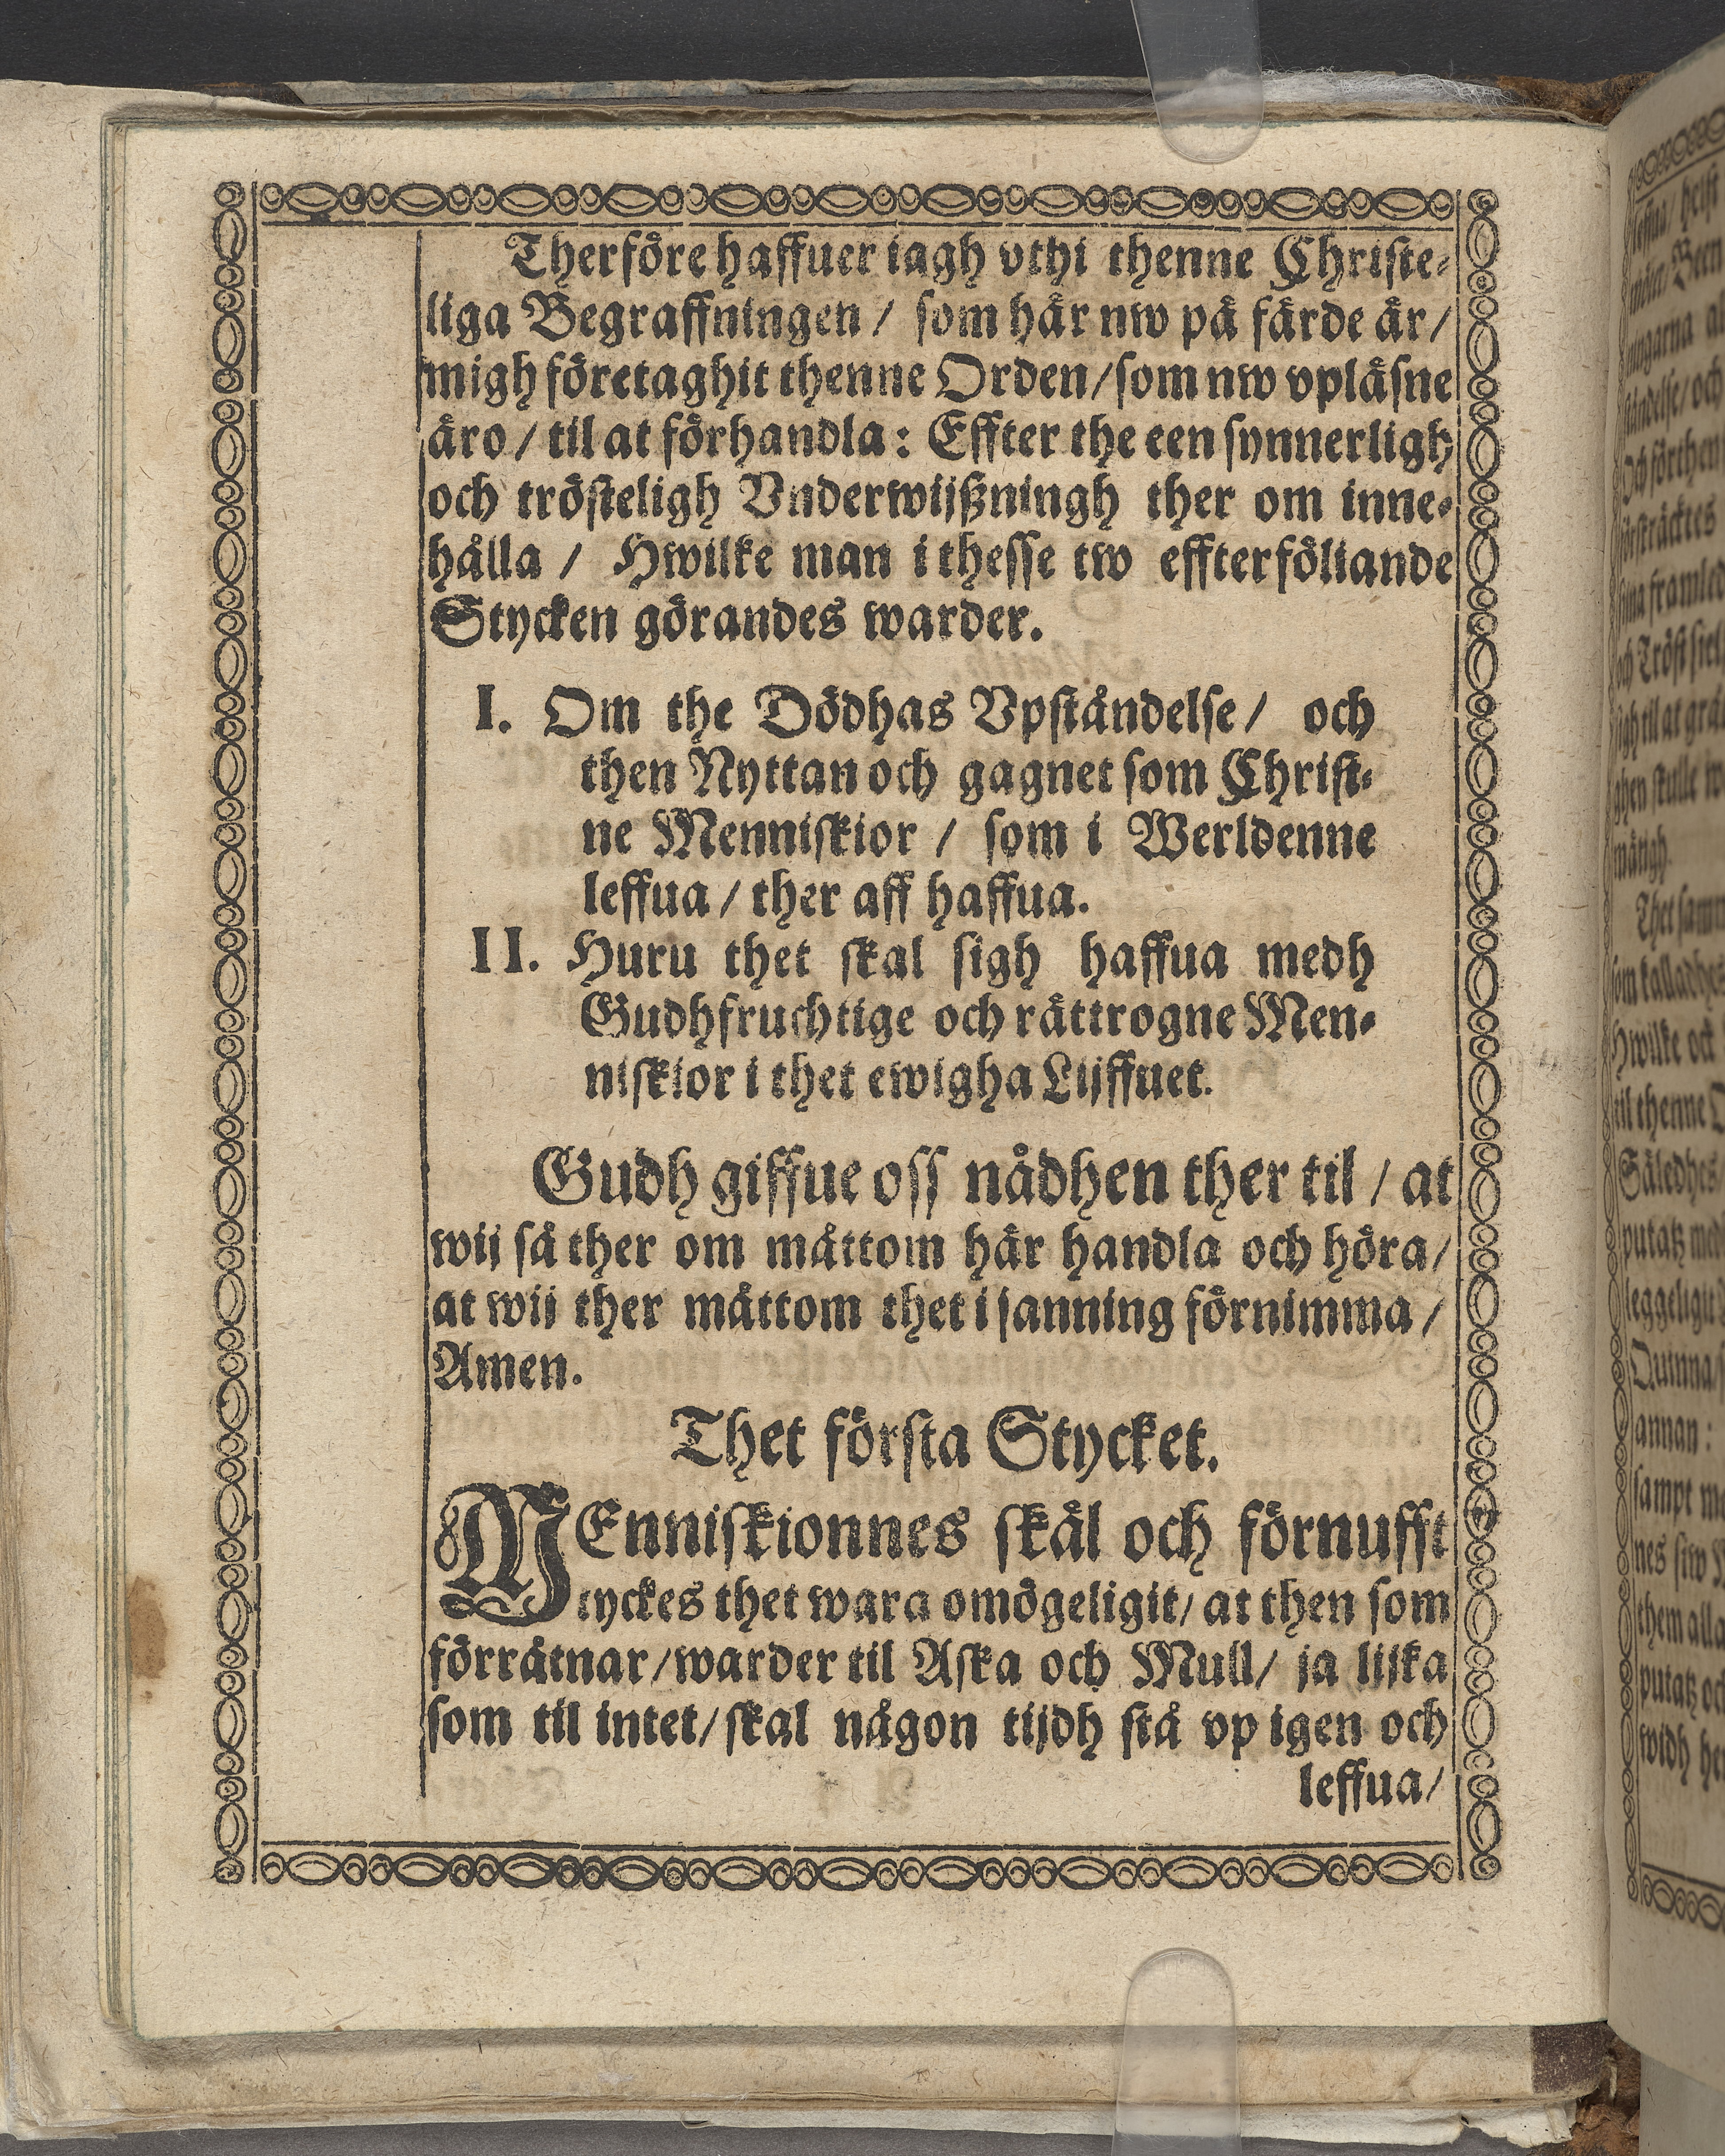 Therföre haffuer iagh vthi thenne Christe-
liga Begraffningen / som här nw på färde är /
migh företaghit thenne Orden / som nw vpläsne
äro / til at förhandla : Effter the een synnerligh
och trösteligh Vnderwijßningh ther om inne-
hålla / Hwilke man i thesse tw effterföliande
Stycken görandes warder.
I. Om the Dödhas Vpståndelse / och
then Nyttan och gagnet som Christ-
ne Menniskior / som i Werldenne
leffua / ther aff haffua.
II. Huru thet skal sigh haffua medh
Gudhfruchtige och rättrogne Men-
niskior i thet ewigha Lijffuet.
Gudh giffue oss nådhen ther til / at
wij så ther om måttom här handla och höra /
at wij ther måttom thet i sanning förnimma /
Amen.
Thet första Stycket.
MEnniskionnes skäl och förnufft
tyckes thet wara omögeligit / at then som
förrätnar / warder til Aska och Mull / ja lijka
som til intet / skal någon tijdh stå vp igen och
leffua /